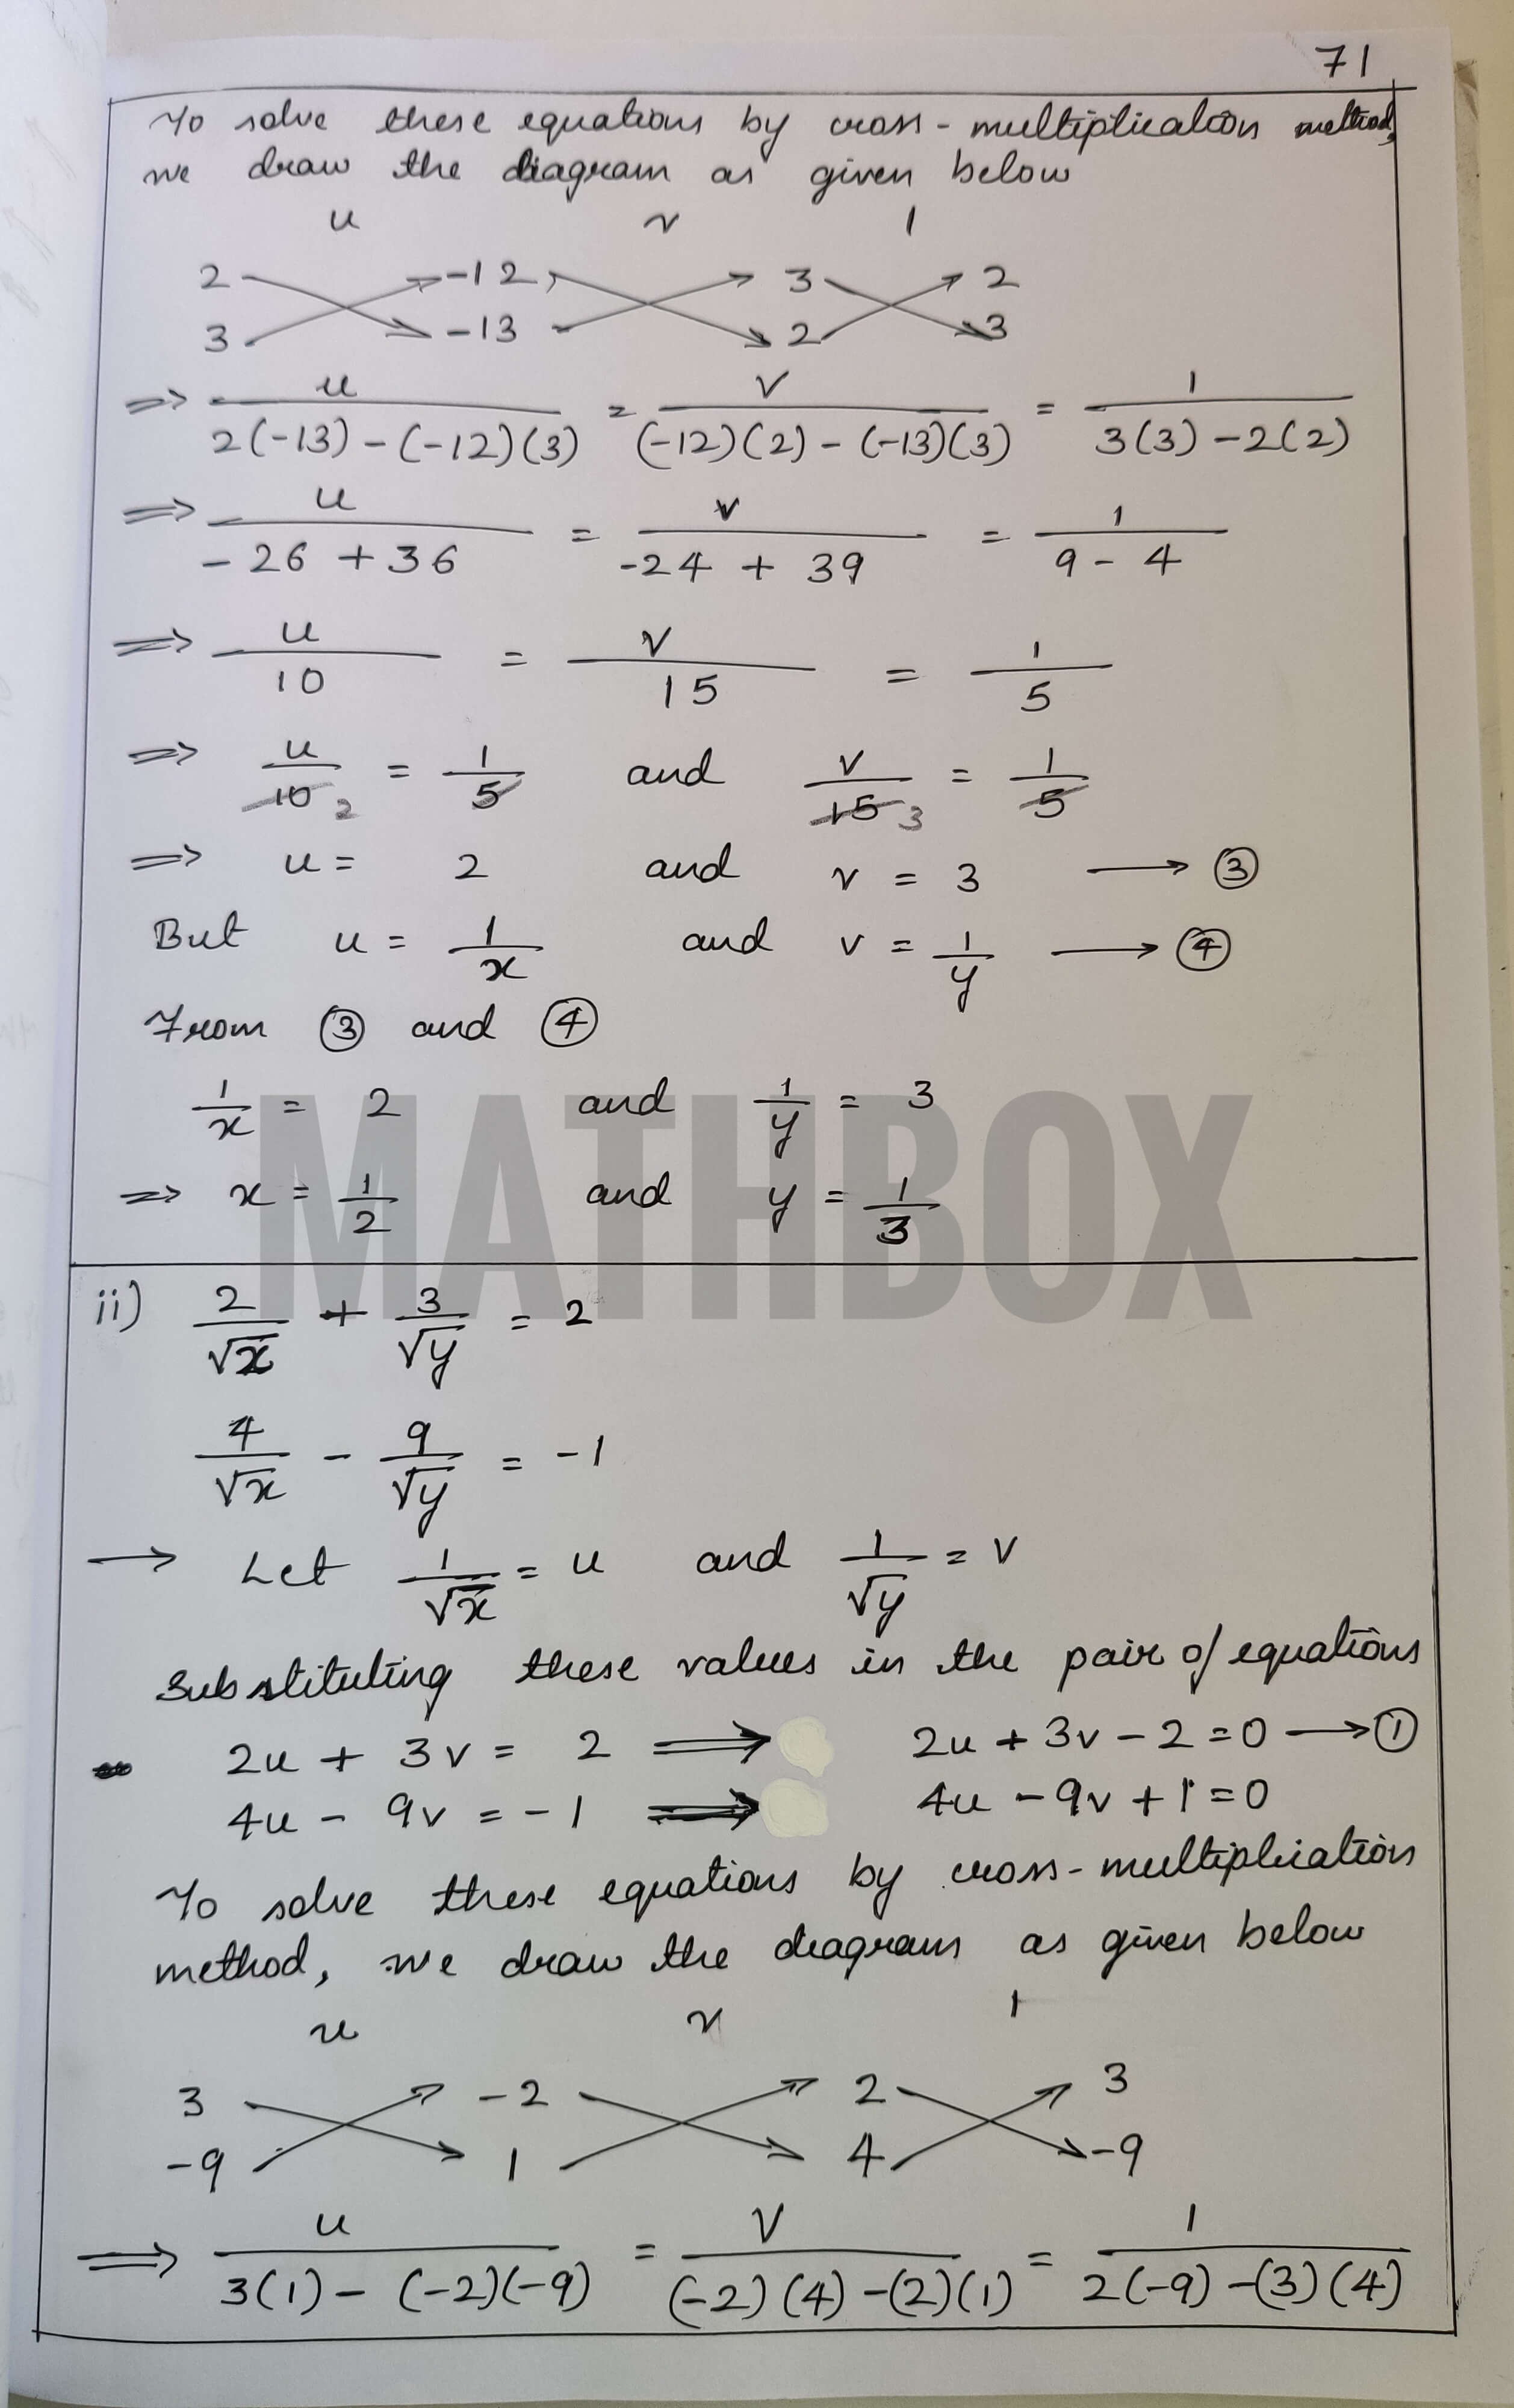 71
To solve these equations by cross-multiplication method,
we draw the diagram as given below
u v 1
2 -12 3 2
3 -13 2 3
⇒ u/(2(-13) - (-12)(3)) = v/((-12)(2) - (-13)(3)) = 1/(3(3) - 2(2))
⇒ u/(-26 + 36) = v/(-24 + 39) = 1/(9 - 4)
⇒ u/10 = v/15 = 1/5
⇒ u/10 2 = 1/5 and v/15 3 = 1/5
⇒ u = 2 and v = 3 → ③
But u = 1/x and v = 1/y → ④
From ③ and ④
1/x = 2 and 1/y = 3
MATHBOX
⇒ x = 1/2 and y = 1/3
ii) 2/√x + 3/√y = 2
4/√x - 9/√y = -1
→ Let 1/√x = u and 1/√y = v
Substituting these values in the pair of equations
2u + 3v = 2 ⇒ 2u + 3v - 2 = 0 → ①
4u - 9v = -1 ⇒ 4u - 9v + 1 = 0
To solve these equations by cross-multiplication
method, we draw the diagram as given below
u v 1
3 -2 2 3
-9 1 4 -9
⇒ u/(3(1) - (-2)(-9)) = v/((-2)(4) - (2)(1)) = 1/(2(-9) - (3)(4))